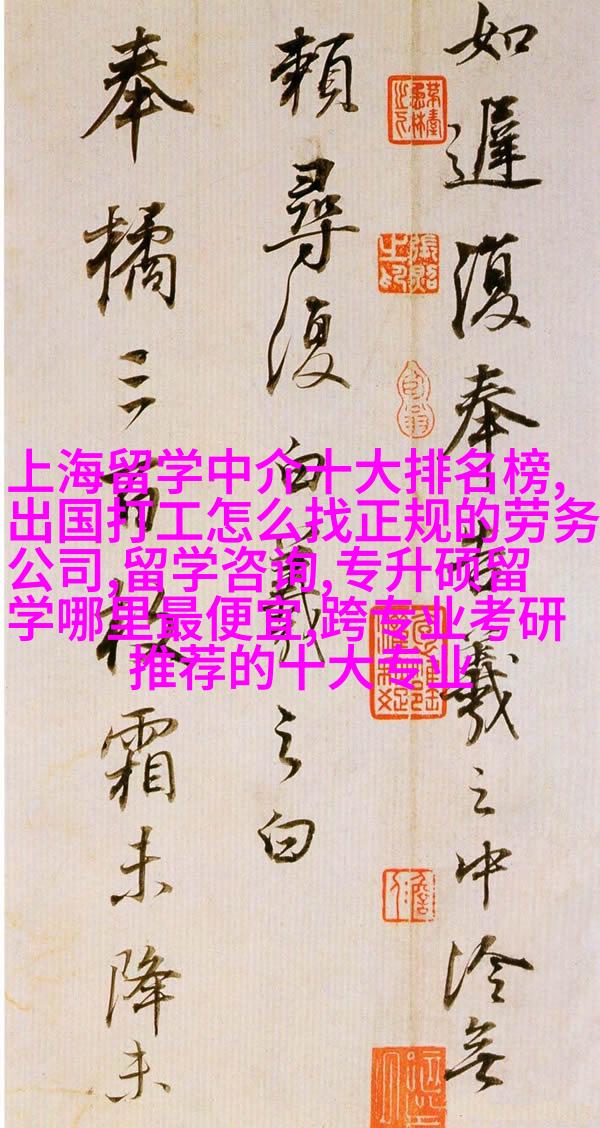 如遲復奉告羲之中冷無
賴尋復白羲之白
奉橘三百枚霜未降未
上海留学中介十大排名榜,
出国打工怎么找正规的劳务
公司,留学咨询,专升硕留
学哪里最便宜,跨专业考研
推荐的十大专业